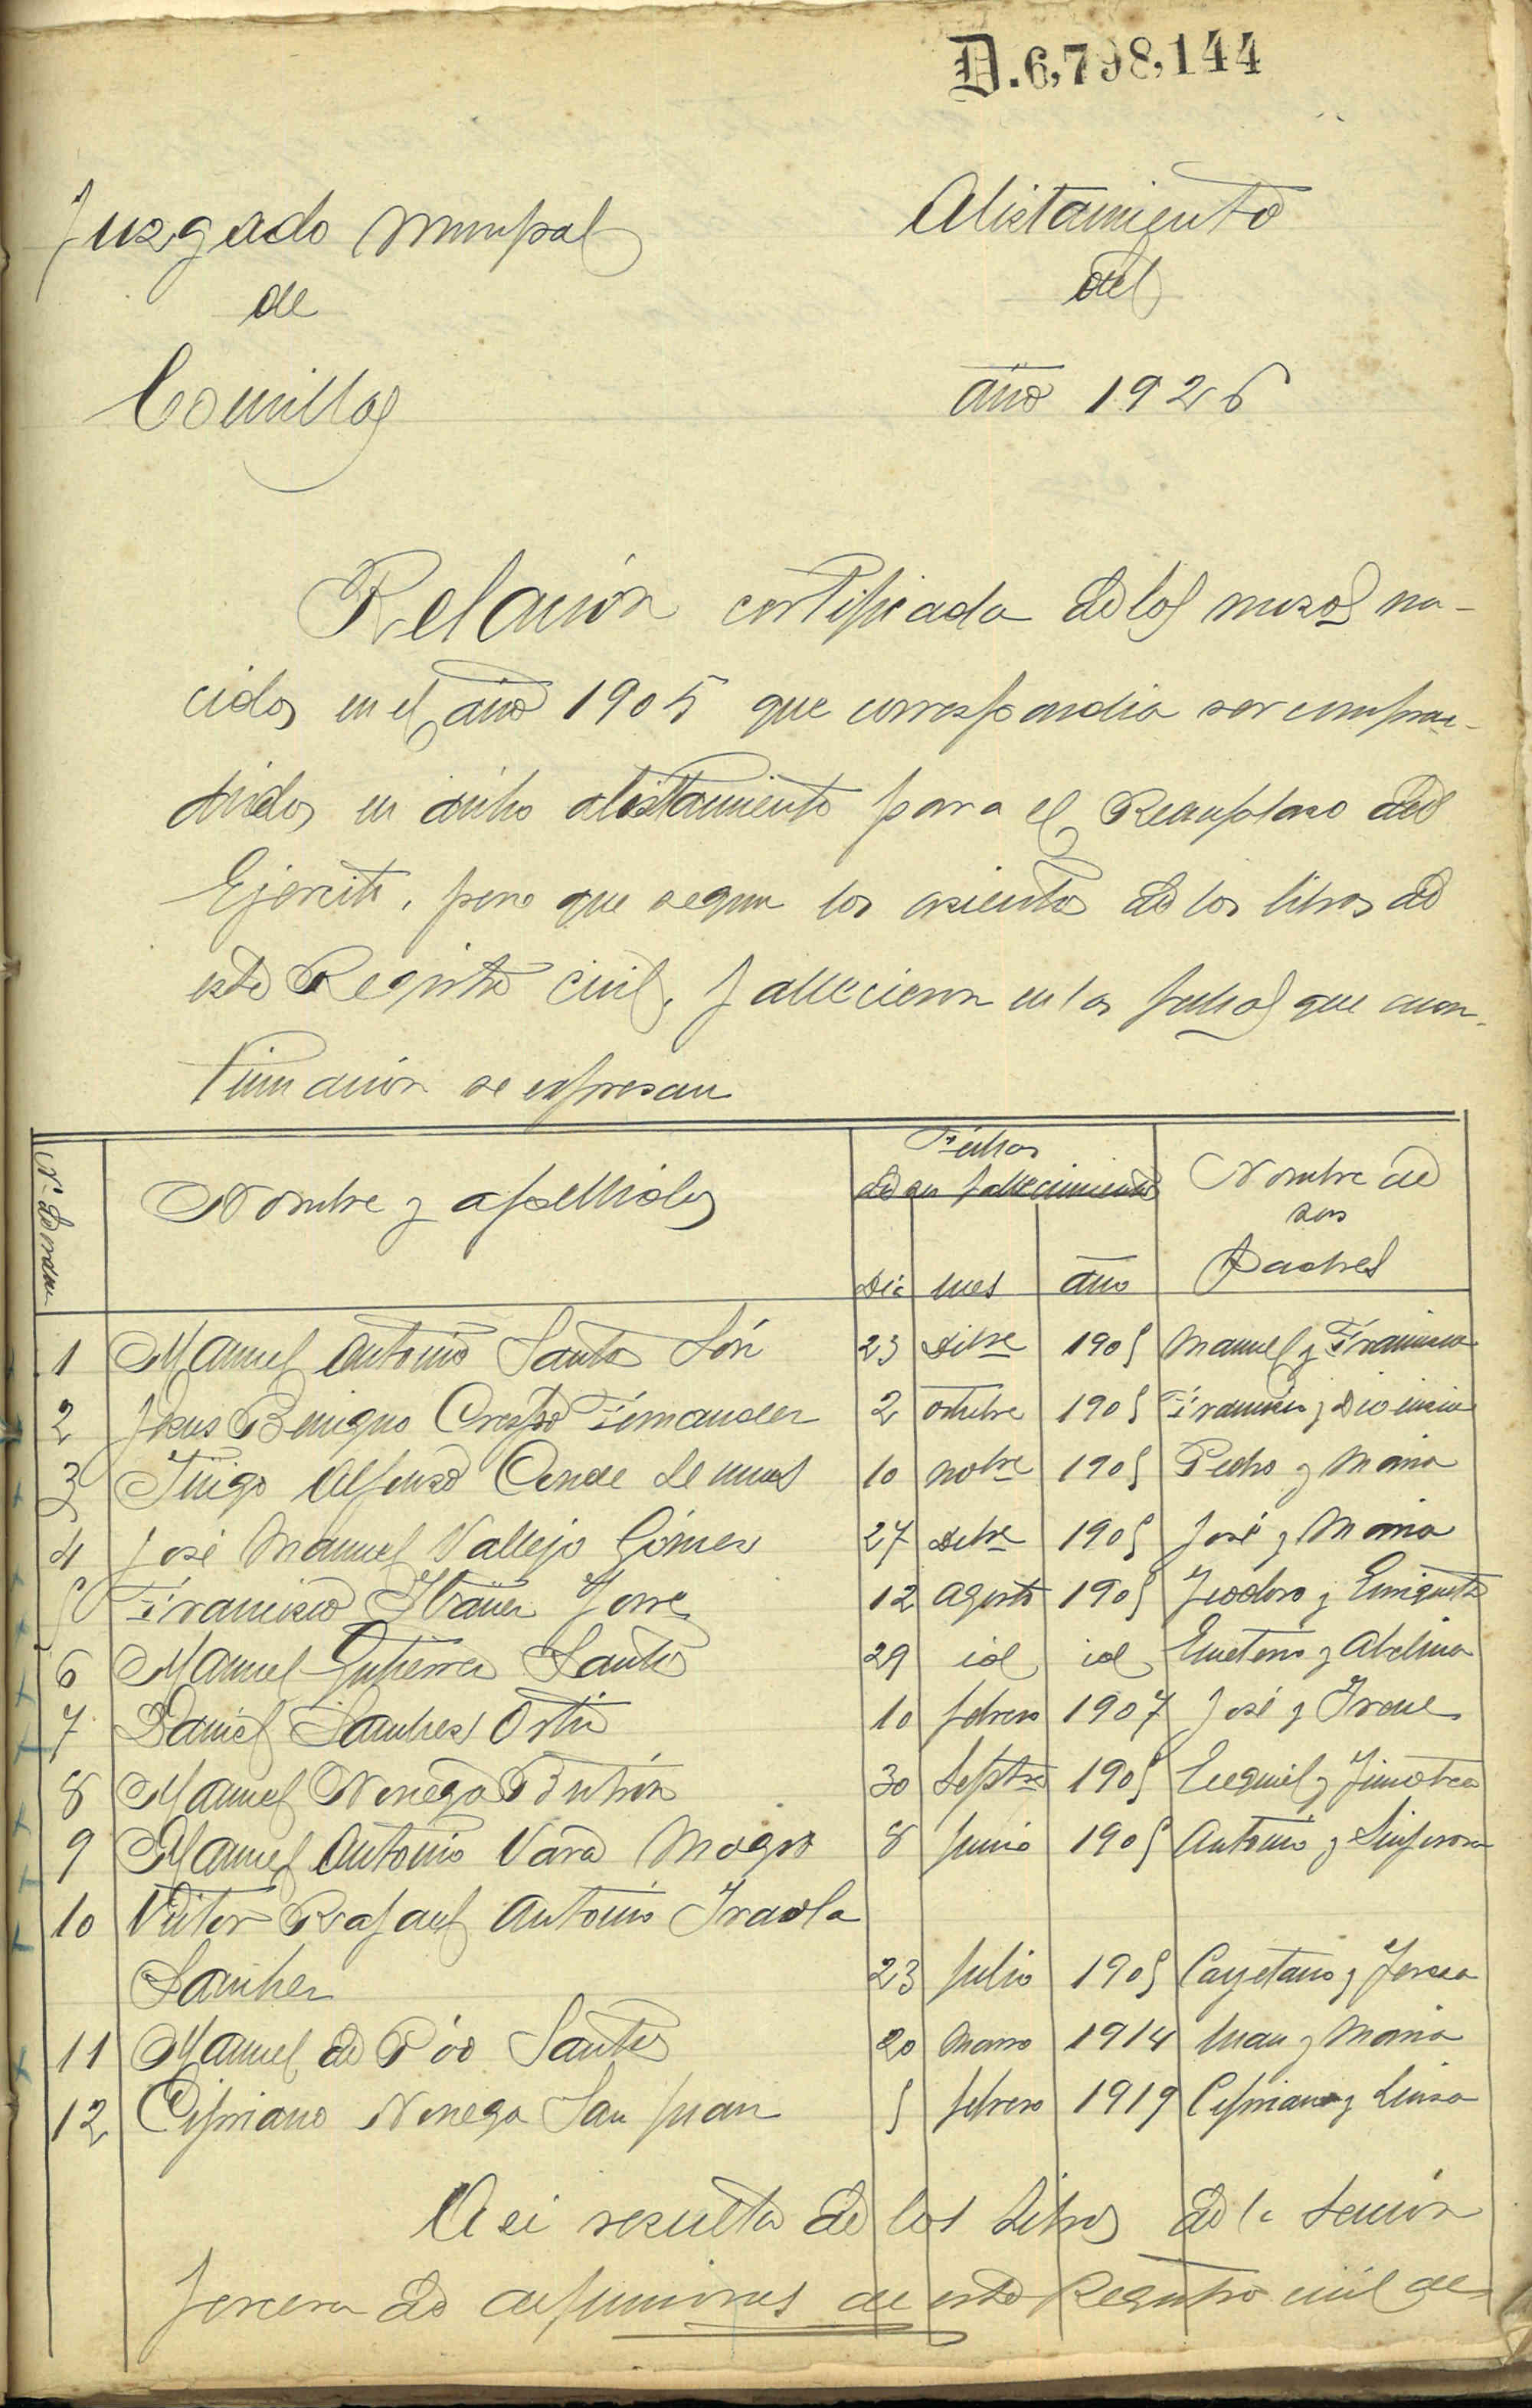 D.6,798,144
Juzgado Municipal Alistamiento
de del
Comillas año 1926
Relación certificada de los mozos na-
cidos en el año 1905 que correspondia ser compren-
didos en dicho alistamiento para el Reemplazo del
Ejercito, pero que segun los asientos de los libros de
este Registro civil, fallecieron en las fechas que a con-
tinuación se expresan
Nº de orden Nombre y apellidos Fechas de su fallecimiento Nombre de sus Padres
Dia mes año
1 Manuel Antonio Santos Són 23 Dibre 1905 Manuel y Francisca
2 Jesus Benigno Crespo Fernandez 2 octubre 1905 Francisco y
3 Iñigo Alfonso Conde Lemus 10 nobre 1905 Pedro y Maria
4 José Manuel Vallejo Gómez 27 Dibre 1905 José y Maria
5 Francisco Ibañez Torre 12 agosto 1905 Teodoro y Enriqueta
6 Manuel Gutierrez Santos 29 id id Emeterio y Abelina
7 Daniel Sanchez Ortiz 10 febrero 1907 José y Irene
8 Manuel Noriega Butrón 30 Septbre 1905 Ezequiel y Timotea
9 Manuel Antonio Vara Mogro 8 Junio 1905 Antonio y Sinforosa
10 Victor Rafael Antonio Iraola
Sanchez 23 Julio 1905 Cayetano y Teresa
11 Manuel de Pío Santos 20 Marzo 1914 Juan y Maria
12 Cipriano Noriega San Juan 5 febrero 1919 Cipriano y Luisa
Asi resulta de los Libros de la Sección
tercera de defunciones de este Registro civil de